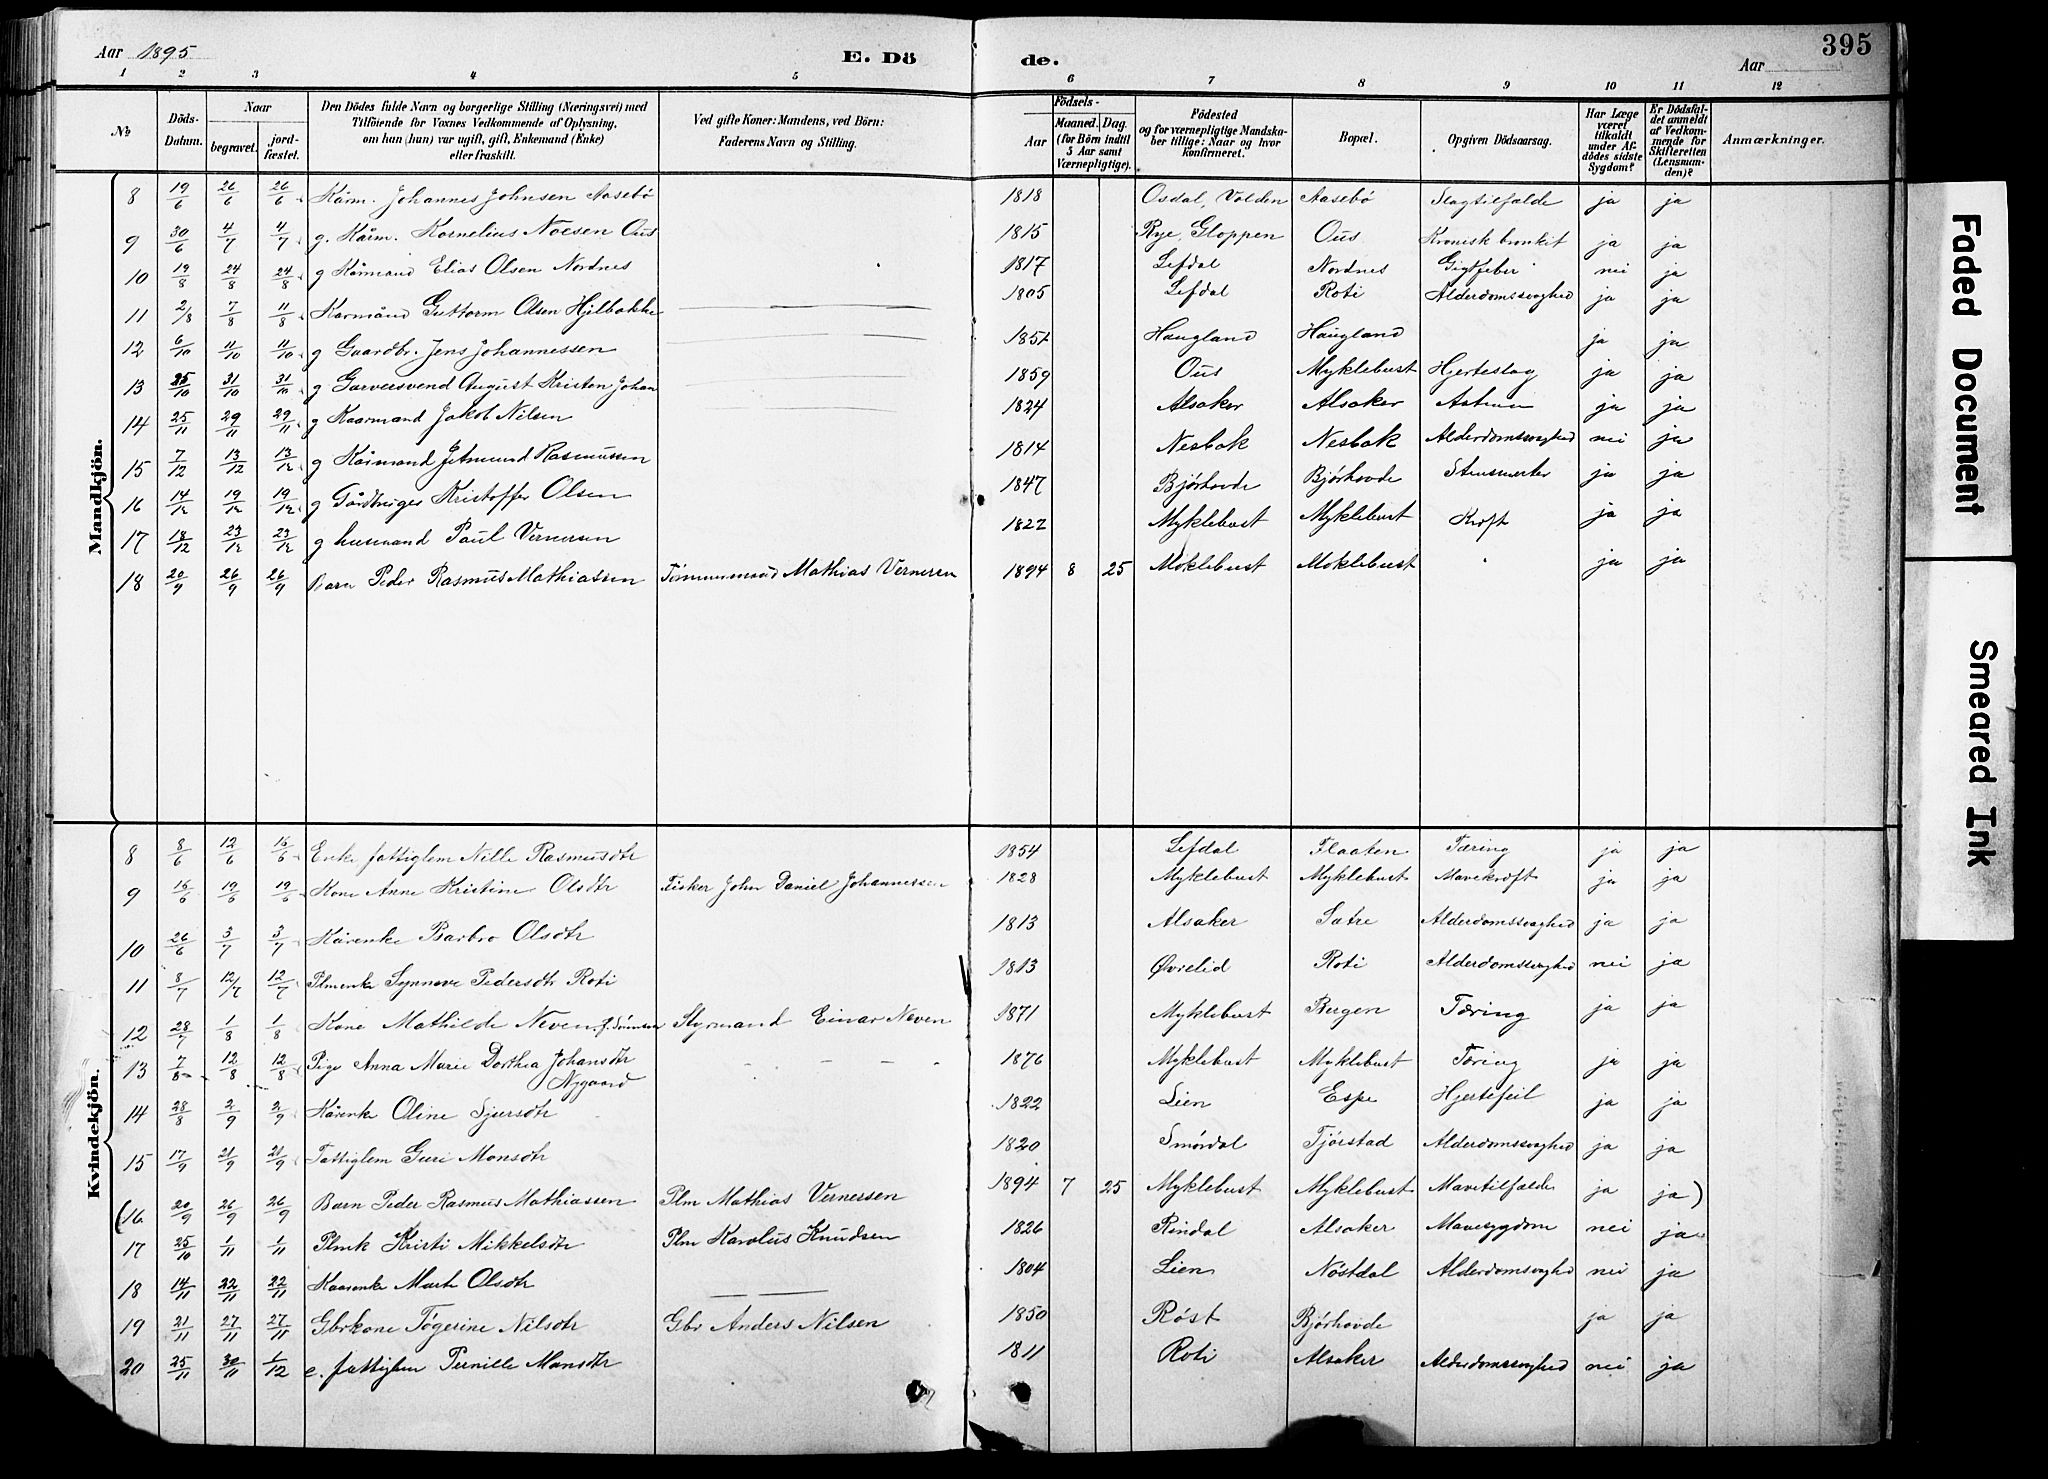 Aar 1895
E. Dö
de.
Aar
395
1 2 3 4 5 6 7 8 9 10 11 12
No
Döds-Datum.
Naar
begravet.
jord-fæstet.
Den Dödes fulde Navn og borgerlige Stilling (Næringsvei) med
Tilföiende for Voxnes Vedkommende af Oplysning,
om han (hun) var ugift, gift, Enkemand (Enke)
eller fraskilt.
Ved gifte Koner: Mandens, ved Börn:
Faderens Navn og Stilling.
Födsels-
Aar
Maaned. Dag.
(for Börn indtil
5 Aar samt
Værnepligtige).
Födested
og for værnepligtige Mandska-
ber tillige: Naar og hvor
konfirmeret.
Bopæl.
Opgiven Dödsaarsag.
Har Læge
været
tilkaldt
under Af-
dödes sidste
Sygdom?
Er Dödsfal-
det anmeldt
af Vedkom-
mende for
Skifteretten
(Lensman-
den)?
Anmærkninger.
Mandkjön.
8 19/6 26/6 26/6 Kårm. Johannes Johnsen Aasebø 1818 Osdal, Volden Aasebø Slagtilfælde ja ja
9 30/6 4/7 4/7 g. Kårm. Kornelius Noesen Ous 1815 Rye, Gloppen Ous Kronisk bronkit ja ja
10 19/8 24/8 24/8 g Kårmand Elias Olsen Nordnes 1817 Lefdal Nordnes Gigtfeber nei ja
11 2/8 7/8 11/8 Karmand Guttorm Olsen Hjelbakke 1805 Lefdal Roti Alderdomssvaghed ja ja
12 6/10 11/10 11/10 g Gaardbr. Jens Johannessen 1851 Haugland Haugland ja ja
13 25/10 31/10 31/10 g Garversvend August Kristen Johan 1859 Ous Myklebust Hjerteslag ja ja
14 25/11 29/11 29/11 g Kaarmand Jakob Nilsen 1824 Alsaker Alsaker ja ja
15 7/12 13/12 13/12 g Kårmand Jetmund Rasmussen 1814 Nesbak Nesbak Alderdomssvaghed nei ja
16 14/12 19/12 19/12 g Gårdbruger Kristoffer Olsen 1847 Bjørhovde Bjørhovde Stensmerter ja ja
17 18/12 23/12 23/12 g husmand Paul Vernersen 1822 Myklebust Myklebust Kræft ja ja
18 20/9 26/9 26/9 Barn Peder Rasmus Mathiassen Tømmermand Mathias Vernersen 1894 8 25 Moklebust Moklebust ja ja
Kvindekjön.
8 8/6 12/6 15/6 Enke fattiglem Nille Rasmusdtr 1854 Lefdal Flaaten Tæring ja ja
9 15/6 19/6 19/6 Kone Anne Kristine Olsdtr Fisker John Daniel Johannessen 1828 Myklebust Myklebust Mavekræft ja ja
10 26/6 3/7 3/7 Kårenke Barbro Olsdtr 1813 Alsaker Satre Alderdomssvaghed ja ja
11 8/7 12/7 12/7 Plmenke Synnøve Pedersdtr Roti 1813 Øvrelid Roti Alderdomssvaghed nei ja
12 28/7 1/8 1/8 Kone Mathilde Neven Styrmand Einar Neven 1871 Myklebust Bergen Tæring ja ja
13 7/8 12/8 12/8 Pige Anna Marie Dorthea Johansdtr 1876 Myklebust Myklebust Tæring ja ja
Nygaard
14 28/8 2/9 2/9 Kårenke Oline Sjursdtr 1822 Lien Espe Hjertefeil ja ja
15 17/9 21/9 21/9 Fattiglem Guri Monsdtr 1820 Smørdal Tjørstad Alderdomssvaghed ja ja
(16 20/9 26/9 26/9 Barn Peder Rasmus Mathiassen Plm Mathias Vernersen 1894 7 25 Myklebust Myklebust Mavetilfælde ja ja)
17 25/10 1/11 1/11 Plmk Kristi Mikkelsdtr Plm Karolus Knudsen 1826 Rindal Alsaker Mavesygdom nei ja
18 14/11 22/11 22/11 Kaarenke Marte Olsdtr 1804 Lien Nøstdal Alderdomsvaghd nei ja
19 21/11 27/11 27/11 Gbrkone Tøgerine Nilsdtr Gbr Anders Nilsen 1850 Røst Bjørhovde ja ja
20 25/11 30/11 1/12 e. fattiglem Pernille Monsdtr 1811 Roti Alsaker Alderdomssvaghed nei ja
Faded Document
Smeared Ink